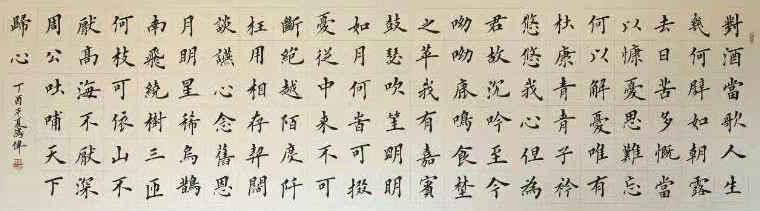 對酒當歌人生
幾何譬如朝露
去日苦多慨當
以慷憂思難忘
何以解憂唯有
杜康青青子衿
悠悠我心但為
君故沈吟至今
呦呦鹿鳴食埜
之苹我有嘉賓
鼓瑟吹笙明明
如月何旹可掇
憂從中來不可
斷絕越陌度阡
枉用相存契闊
談讌心念舊恩
月明星稀烏鵲
南飛繞樹三匝
何枝可依山不
厭高海不厭深
周公吐哺天下
歸心
丁酉